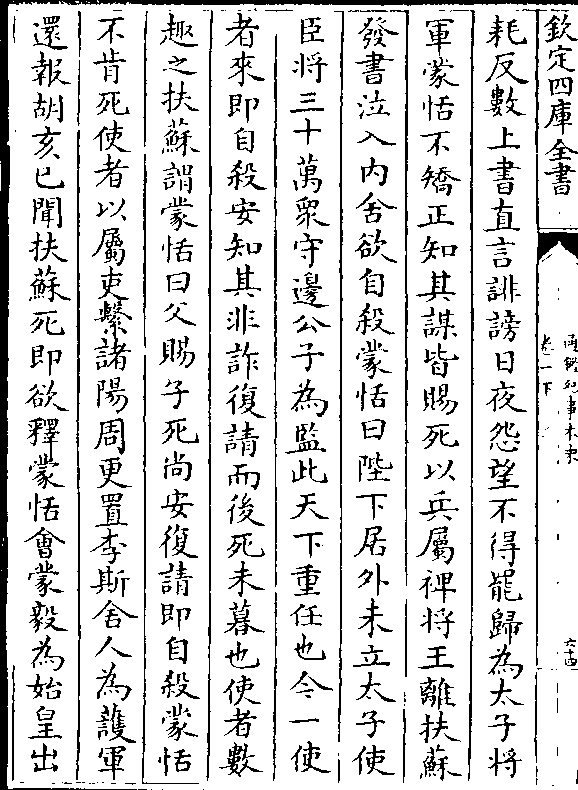 欽定四庫全書
卷一下
耗反數上書直言誹謗日夜怨望不得罷歸為太子將
軍蒙恬不矯正知其謀皆賜死以兵屬裨將王離扶蘇
發書泣入內舍欲自殺蒙恬曰陛下居外未立太子使
臣將三十萬衆守邊公子為監此天下重任也今一使
者來即自殺安知其非詐復請而後死未暮也使者數
趣之扶蘇謂蒙恬曰父賜子死尚安復請即自殺蒙恬
不肯死使者以屬吏繫諸陽周更置李斯舍人為護軍
還報胡亥已聞扶蘇死即欲釋蒙恬會蒙毅為始皇出